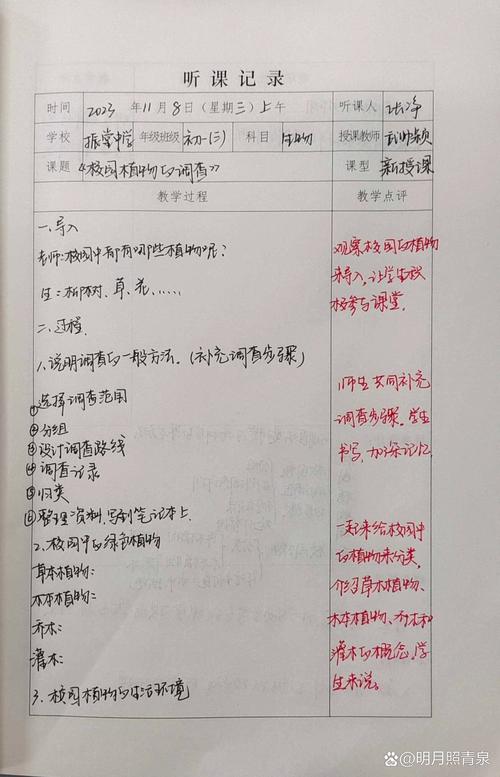 听课记录
时间 2023年11月8日（星期三）上午 听课人 张净
学校 振堂中学 年级班级 初一(三) 科目 生物 授课教师 武帅颖
课题 《校园植物的调查》 课型 新授课
教学过程 教学点评
一、导入
老师：校园中都有哪些植物呢？
生：柳树、草、花、……
二、过程
1、说明调查的一般方法。（补充调查步骤）
①选择调查范围
②分组
③设计调查路线
④调查记录
⑤归类
⑥整理资料，写到笔记本上.
2、校园中的绿色植物
草本植物：
木本植物：
乔木：
灌木：
3、校园植物的生活环境
观察校园的植物
来导入，让学生积
极参与课堂.
师生共同补充
调查步骤。学生
书写，加深记忆.
一起来给校园中
的植物来分类，
介绍草本植物、
木本植物、乔木和
灌木的概念，学
生来说。
知乎 @明月照青泉